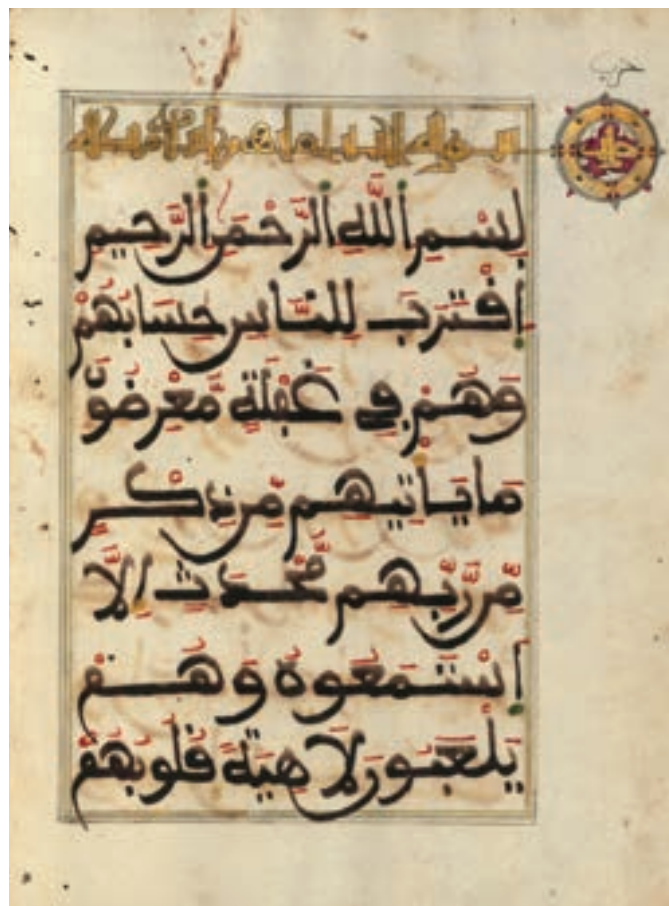 حزب
بِسْمِ اللَّهِ الرَّحْمَٰنِ الرَّحِيمِ
اقْتَرَبَ لِلنَّاسِ حِسَابُهُمْ
وَهُمْ فِي غَفْلَةٍ مُّعْرِضُونَ
مَا يَأْتِيهِم مِّن ذِكْرٍ
مِّن رَّبِّهِم مُّحْدَثٍ إِلَّا
اسْتَمَعُوهُ وَهُمْ
يَلْعَبُونَ لَاهِيَةً قُلُوبُهُمْ